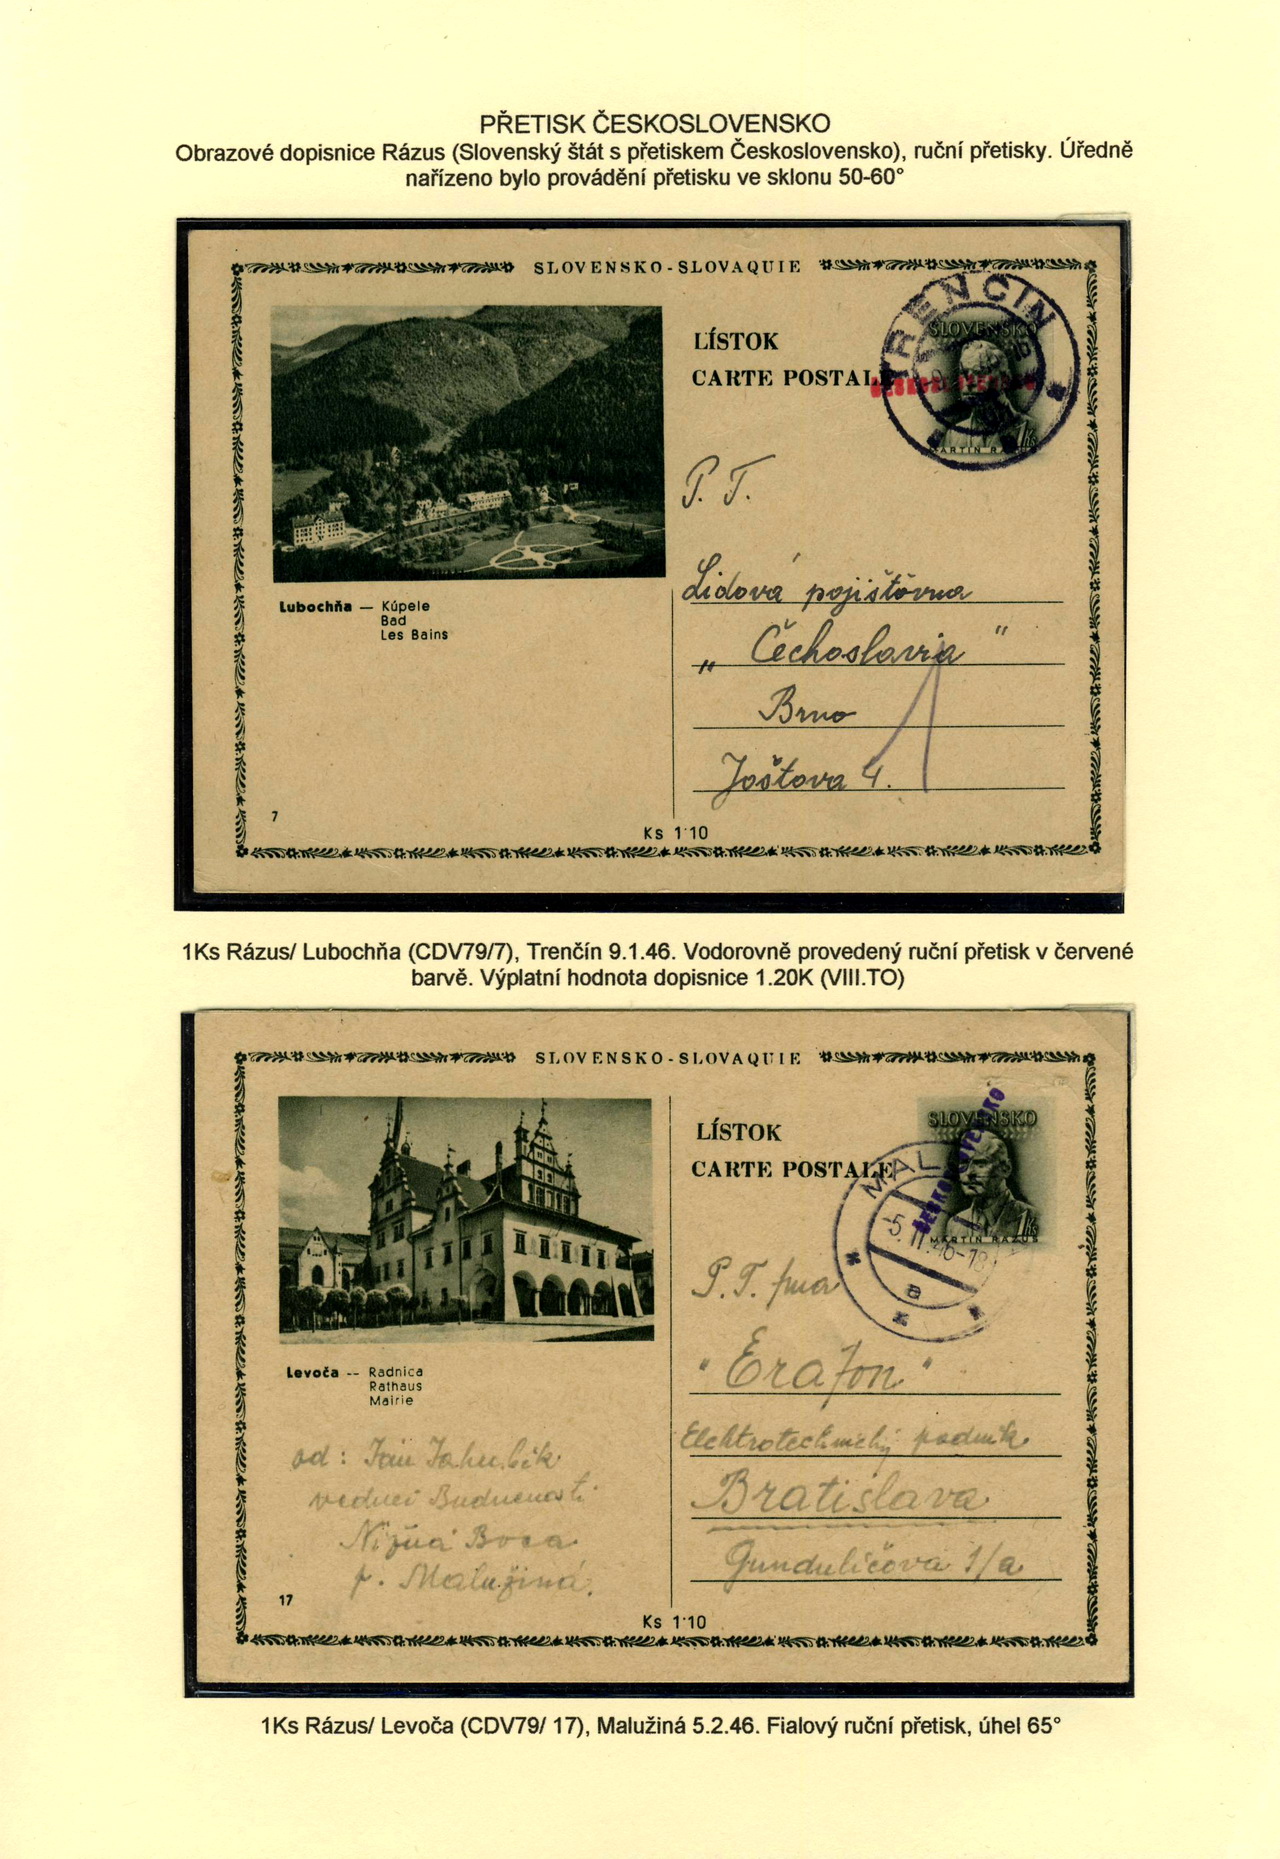 PŘETISK ČESKOSLOVENSKO
Obrazové dopisnice Rázus (Slovenský štát s přetiskem Československo), ruční přetisky. Úředně
nařízeno bylo provádění přetisku ve sklonu 50-60°
SLOVENSKO-SLOVAQUIE
TRENČÍN
SLOVENSKO
LÍSTOK
CARTE POSTALE
1Ks
MARTIN RÁZUS
P. T.
Lidová pojišťovna
„Čechoslavia"
Brno
Joštova 4.
Lubochňa — Kúpele
Bad
Les Bains
7
Ks 1·10
1Ks Rázus/ Lubochňa (CDV79/7), Trenčín 9.1.46. Vodorovně provedený ruční přetisk v červené
barvě. Výplatní hodnota dopisnice 1.20K (VIII.TO)
SLOVENSKO-SLOVAQUIE
SLOVENSKO
ČESKOSLOVENSKO
LÍSTOK
CARTE POSTALE
MAL
-5.II.46-18
a
1Ks
MARTIN RÁZUS
P. T. fma
"Erafon"
Elektrotechnický podnik
Bratislava
Gunduličova 1/a
Levoča -- Radnica
Rathaus
Mairie
od: Ján
vedúci Budúcnosti
Nižná Boca
p. Malužiná.
17
Ks 1·10
1Ks Rázus/ Levoča (CDV79/ 17), Malužiná 5.2.46. Fialový ruční přetisk, úhel 65°